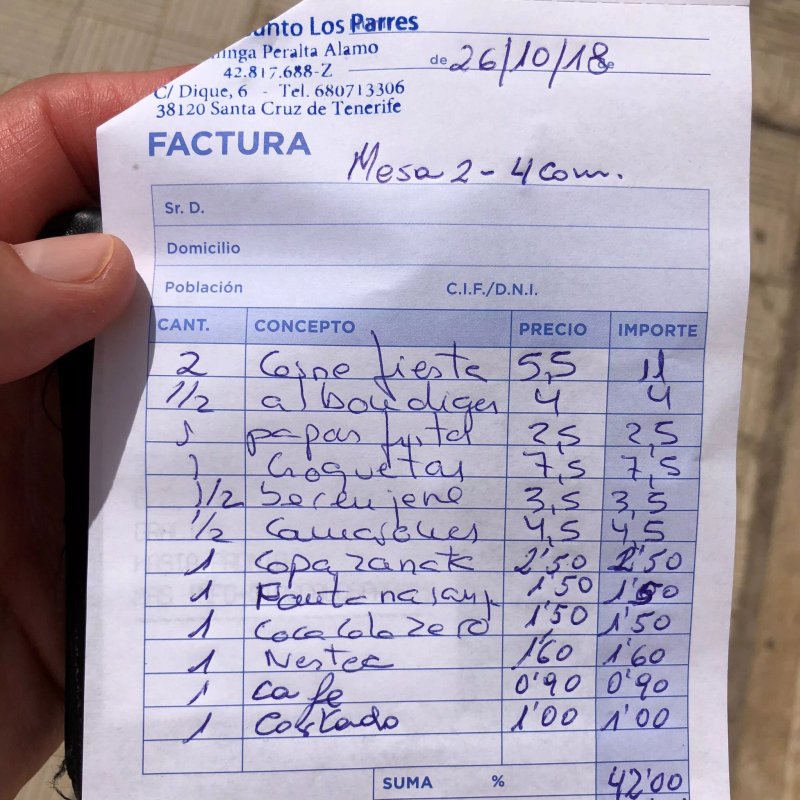 unto Los Parres
inga Peralta Alamo
42.817.688-Z
de 26/10/18
C/ Dique, 6 - Tel. 680713306
38120 Santa Cruz de Tenerife
FACTURA
Mesa 2 - 4 com.
Sr. D.
Domicilio
Población C.I.F./D.N.I.
CANT. CONCEPTO PRECIO IMPORTE
2 Carne fiesta 5,5 11
1/2 albondigas 4 4
1 papas frital 2,5 2,5
1 Croquetas 7,5 7,5
1/2 berenjena 3,5 3,5
1/2 Camarones 4,5 4,5
1 Copa zanata 2'50 2'50
1 Fanta naranj 1'50 1'50
1 Coca Cola zero 1'50 1'50
1 Nestee 1'60 1'60
1 cafe 0'90 0'90
1 Cortado 1'00 1'00
SUMA % 42'00